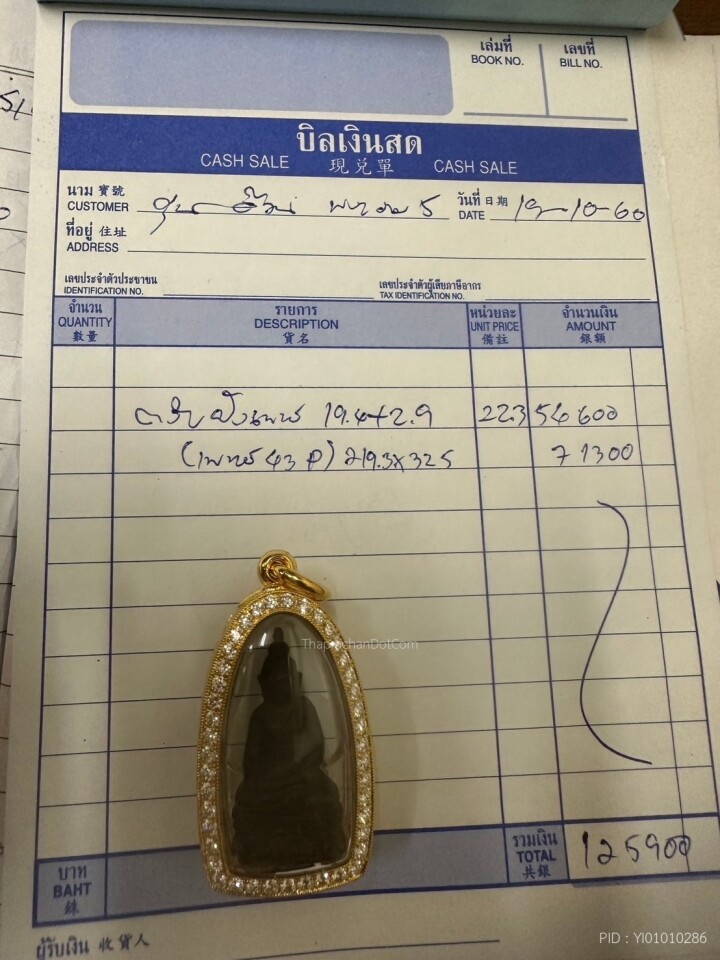 เล่มที่ เลขที่
BOOK NO. BILL NO.
บิลเงินสด
CASH SALE 現兑單 CASH SALE
นาม 寶號
CUSTOMER 5 วันที่ 日期 DATE 19-10-60
ที่อยู่ 住址
ADDRESS
เลขประจำตัวประชาชน เลขประจำตัวผู้เสียภาษีอากร
IDENTIFICATION NO. TAX IDENTIFICATION NO.
จำนวน รายการ หน่วยละ จำนวนเงิน
QUANTITY DESCRIPTION UNIT PRICE AMOUNT
數量 貨名 備註 銀額
ตลับฝังเพชร 19.4+2.9 22.3 54600
(เพชร 43 P) 219.3x325 71300
ThaprachanDotCom
บาท รวมเงิน
BAHT TOTAL 125900
銖 共銀
ผู้รับเงิน 收貨人
PID : YI01010286